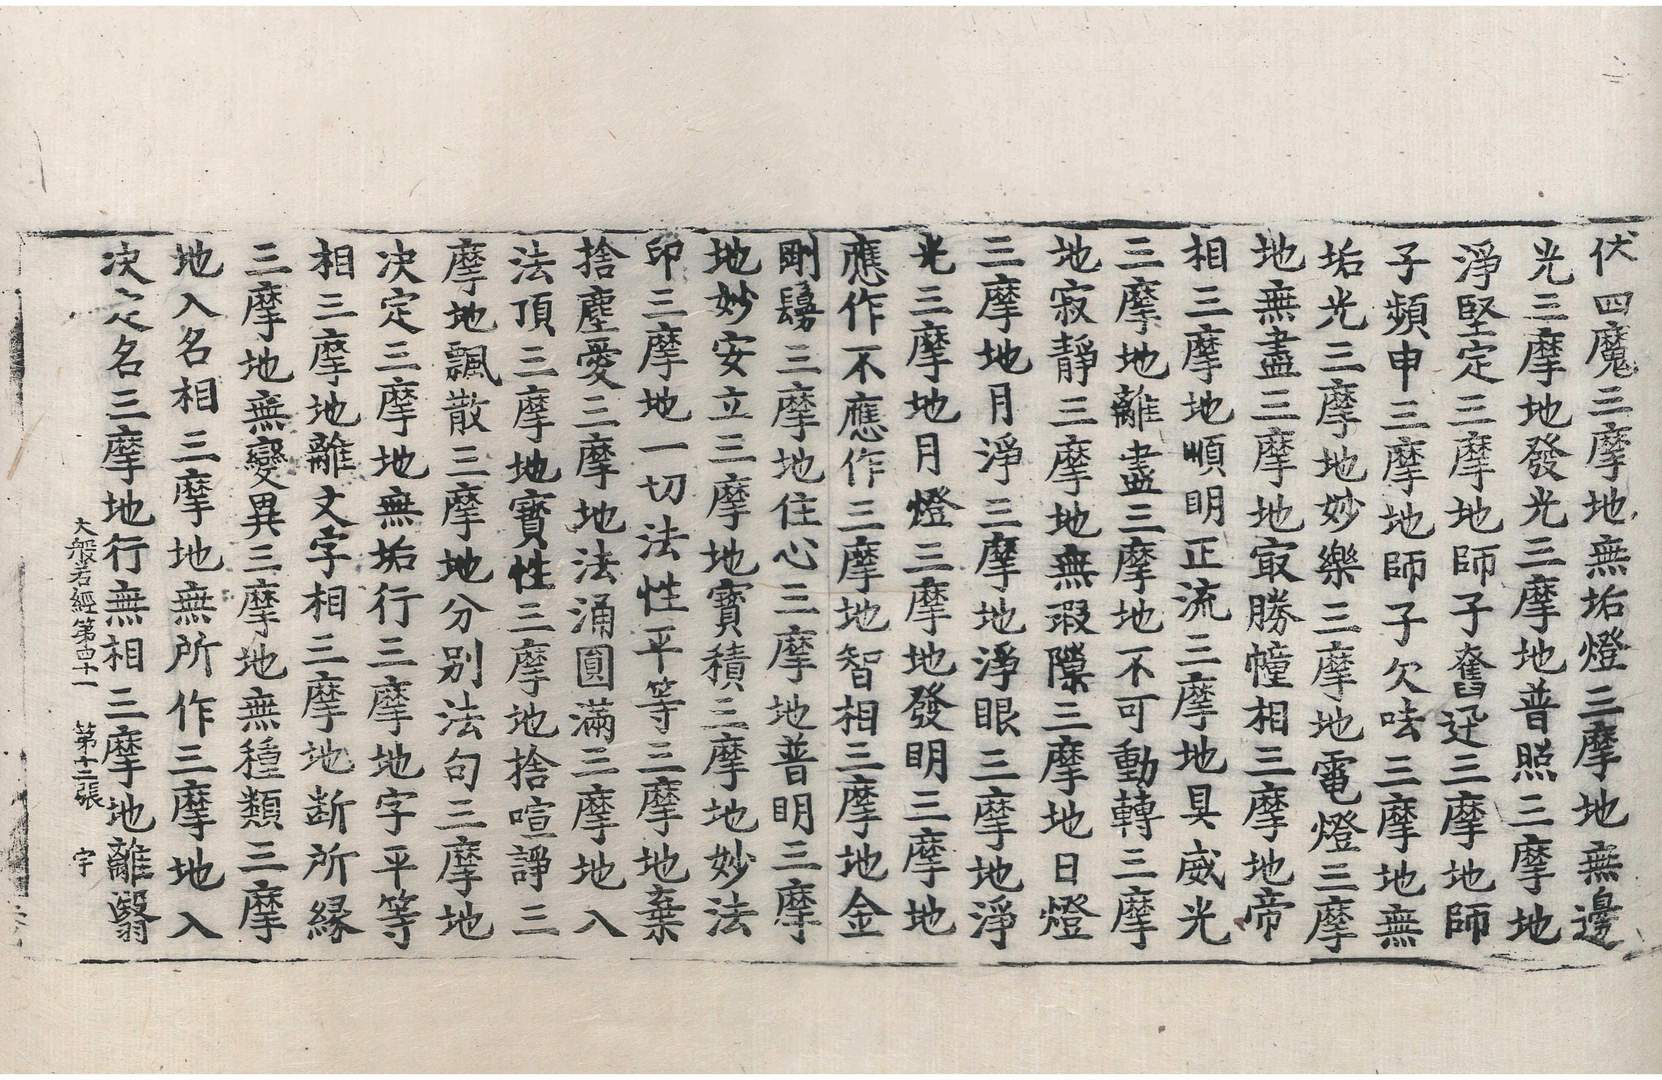 伏四魔三摩地無垢燈三摩地無邊
光三摩地發光三摩地普照三摩地
淨堅定三摩地師子奮迅三摩地師
子頻申三摩地師子欠呿三摩地無
垢光三摩地妙樂三摩地電燈三摩
地無盡三摩地寂勝幢相三摩地帝
相三摩地順明正流三摩地具威光
三摩地離盡三摩地不可動轉三摩
地寂靜三摩地無瑕隙三摩地日燈
三摩地月淨三摩地淨眼三摩地淨
光三摩地月燈三摩地發明三摩地
應作不應作三摩地智相三摩地金
剛鬘三摩地住心三摩地普明三摩
地妙安立三摩地寶積三摩地妙法
印三摩地一切法性平等三摩地棄
捨塵愛三摩地法涌圓滿三摩地入
法頂三摩地寶性三摩地捨喧諍三
摩地飄散三摩地分別法句三摩地
決定三摩地無垢行三摩地字平等
相三摩地離文字相三摩地斷所緣
三摩地無變異三摩地無種類三摩
地入名相三摩地無所作三摩地入
決定名三摩地行無相三摩地離翳
大般若經第四十一 第十二張 宇